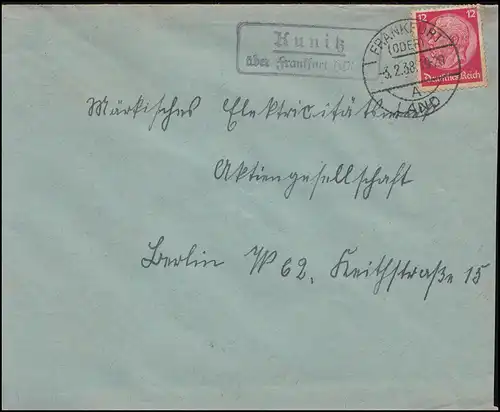 Kunitz
über Frankfurt
FRANKFURT
(ODER)
-3.2.38.
A
LAND
12 12
Deutsches Reich
Märkisches Elektricitätswerk
Aktiengesellschaft
Berlin W 62, Keithstraße 15